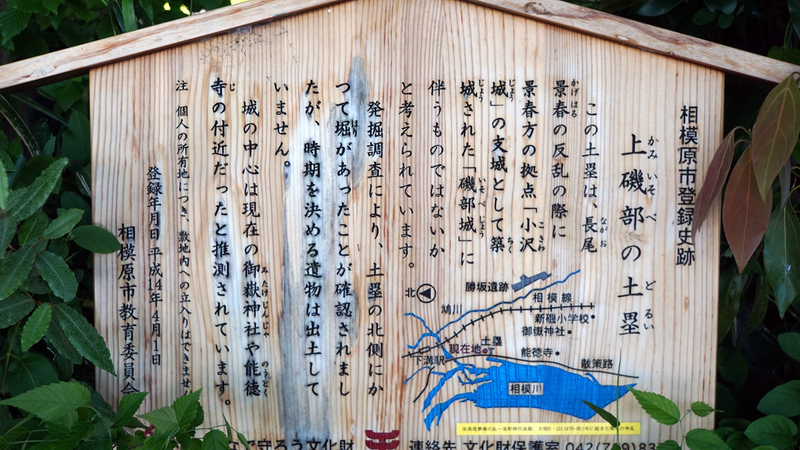 相模原市登録史跡
上磯部の土塁
かみ いそべ どるい
この土塁は、長尾
ながお
景春の反乱の際に
かげはる
景春方の拠点「小沢
こさわ
城」の支城として築
じょう ちく
城された「磯部城」に
じょう いそべじょう
伴うものではないか
と考えられています。
発掘調査により、土塁の北側にか
つて堀があったことが確認されまし
ほり
たが、時期を決める遺物は出土して
いません。
城の中心は現在の御嶽神社や能徳
みたけじんじゃ のうとく
寺の付近だったと推測されています。
じ
注 個人の所有地につき、敷地内への立入りはできません
登録年月日 平成14年4月1日
相模原市教育委員会
北
勝坂遺跡
相模線
鳩川
新磯小学校
御嶽神社
土塁
現在地
下溝駅
能徳寺
散策路
相模川
守ろう文化財
連絡先 文化財保護室 042